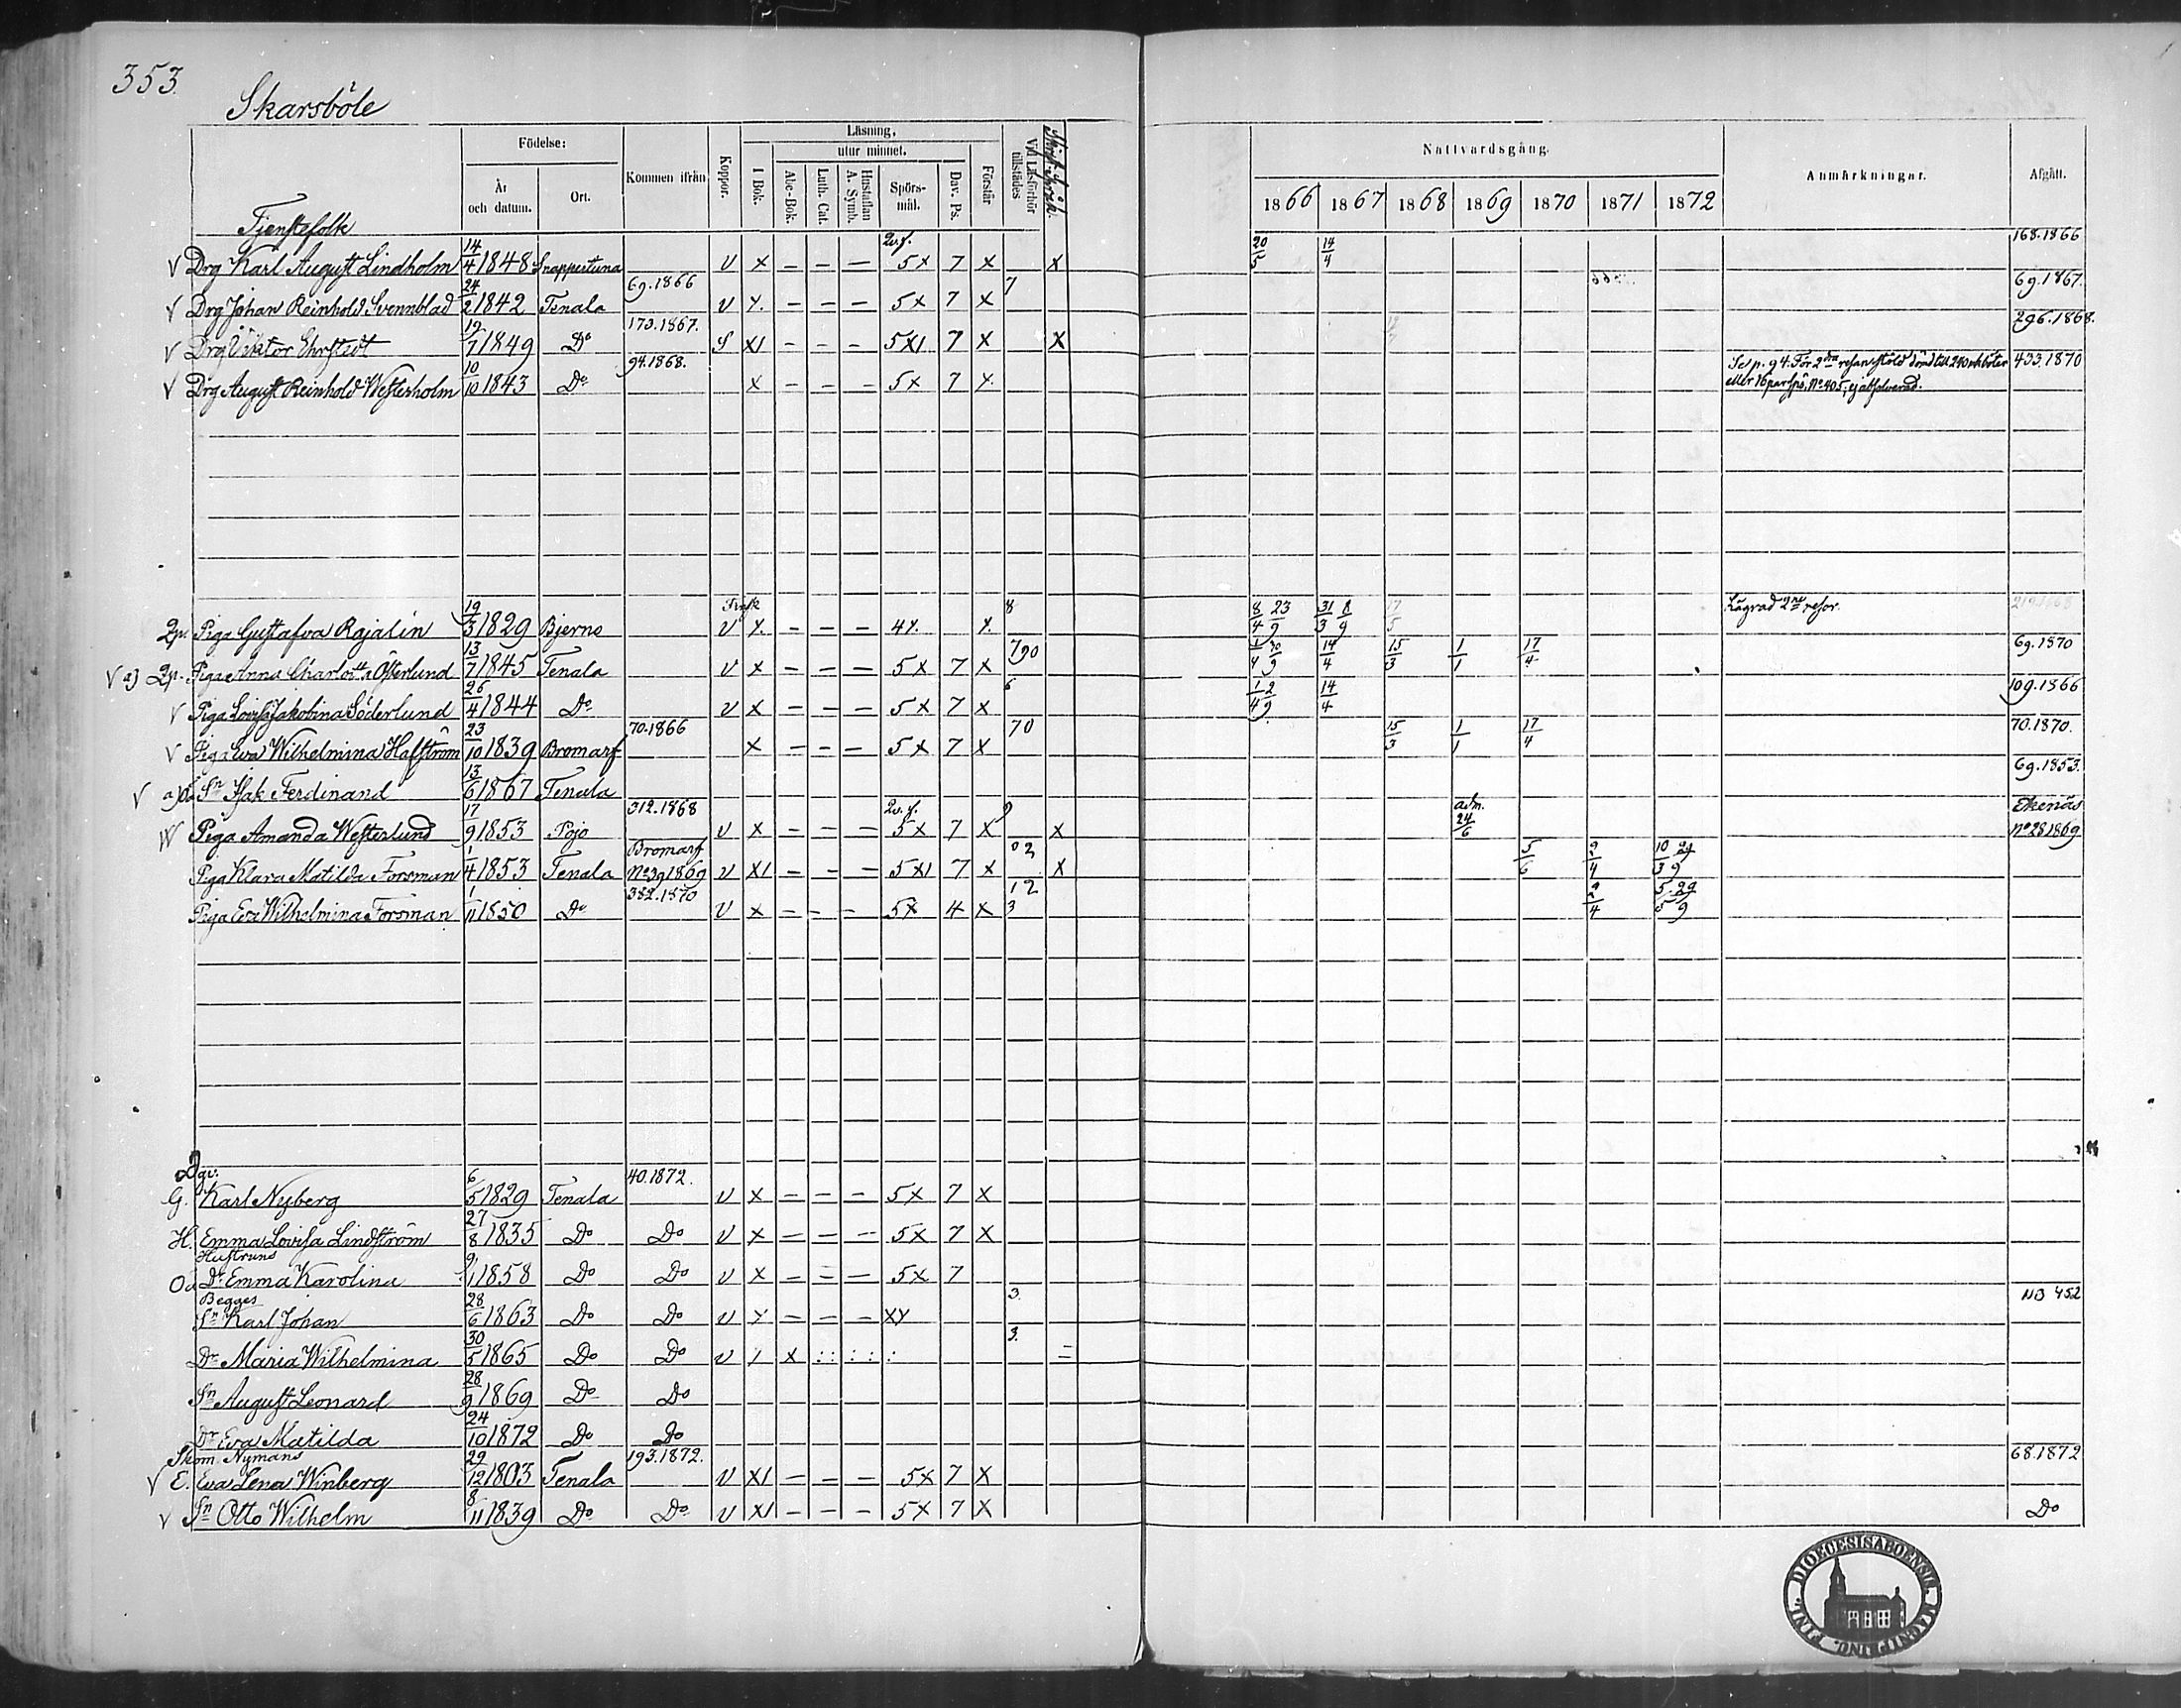 353.
Skarsböle
Födelse: Kommen ifrån Koppor. Läsning, Vid Läsförhör tillstädes
utur minnet.
År och datum. Ort. I Bok. Abc-Bok. Luth. Cat. Hustaflan A. Symb. Spörs-mål. Dav. Ps. Förstår
Nattvardsgång. Anmärkningar. Afgått.
1866 1867 1868 1869 1870 1871 1872
Tjenstefolk
V Drg Karl August Lindholm 14/4 1848 Snappertuna V X – – – 5X 7 X X 20/5 14/4 168.1866
V Drg Johan Reinhold Svennblad 24/2 1842 Tenala 69.1866 V X – – – 5X 7 X 7 69.1867.
V Drg Viktor Ehrstedt 19/7 1849 Do 173.1867. S XI – – – 5XI 7 X X 296.1868.
V Drg August Reinhold Westerholm 10/10 1843 Do 94.1868. X – – – 5X 7 X Se p. 94. För 2dra resan stöld dömd till 240 mk böter 433.1870
eller 16 par spö, No 405, ej absolverad.
2p. Piga Gustafva Rajalin 19/3 1829 Bjerno Finsk V X – – – 4X X 8 8/4 23/9 31/3 8/9 17/5 Lägrad 2ne resor.
V a) 2p. Piga Anna Charlotta Österlund 13/7 1845 Tenala V X – – – 5X 7 X 790 1/4 30/9 14/4 15/3 1/1 17/4 69.1870
V Piga Lovisa Jakobina Söderlund 26/4 1844 Do V X – – – 5X 7 X 6 1/4 2/9 14/4 109.1866
V Piga Eva Wilhelmina Hafström 23/10 1839 Bromarf 70.1866 X – – – 5X 7 X 70 15/3 1/1 17/4 70.1870.
V a) Oä Sn Isak Ferdinand 13/6 1867 Tenala 69.1853.
W Piga Amanda Westerlund 17/9 1853 Pojo 312.1868 V X – – – 5X 7 X 9 X adm. 24/6 Ekenäs No 28 1869
Piga Klara Matilda Forsman 1/4 1853 Tenala Bromarf No 39 1869 V XI – – – 5XI 7 X 02 X 5/6 2/4 10/3 29/9
Piga Eva Wilhelmina Forsman 1/11 1850 Do 382.1870 V X – – – 5X 4 X 12 3 2/4 5/5 29/9
Dgv.
G. Karl Nyberg 6/5 1829 Tenala 40.1872. V X – – – 5X 7 X
H. Emma Lovisa Lindström 27/8 1835 Do Do V X – – – 5X 7 X
Hustruns
Oä Dr Emma Karolina 9/1 1858 Do Do V X – – – 5X 7
Begges
Sn Karl Johan 28/6 1863 Do Do V Y – – – XY 3. NB 452
Dr Maria Wilhelmina 30/5 1865 Do Do V / X : : : : : 3. =
Sn August Leonard 28/9 1869 Do Do
Dr Eva Matilda 24/10 1872 Do Do
Skom Nymans
V E. Eva Lena Winberg 29/12 1803 Tenala 193.1872. V XI – – – 5X 7 X 68.1872
V Sn Otto Wilhelm 8/11 1839 Do Do V XI – – – 5X 7 X Do